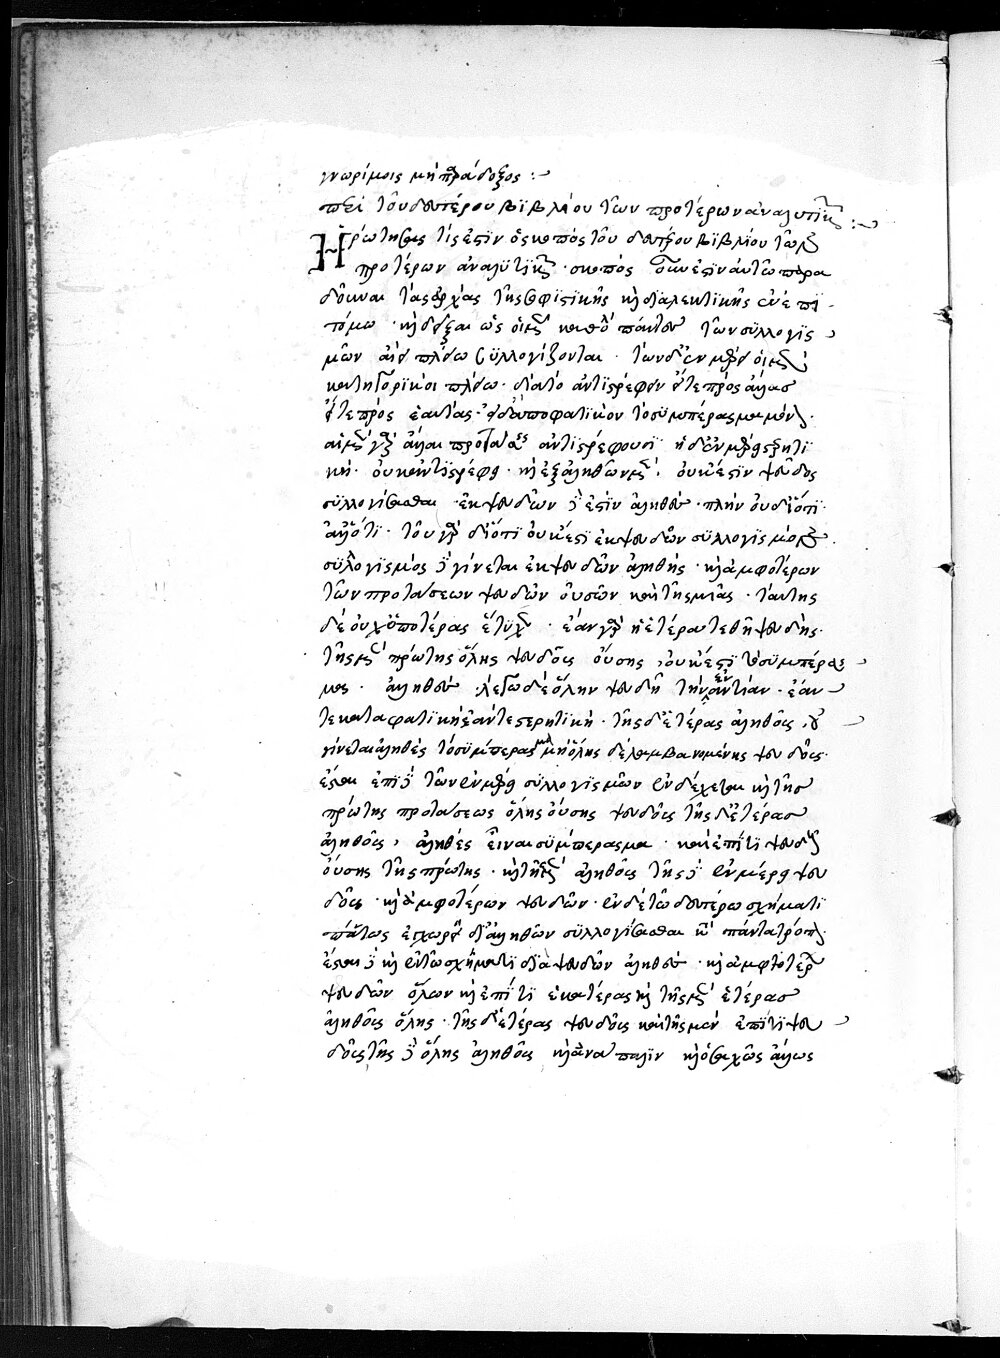 γνωρίμοις μὴ παράδοξος :~
περὶ τοῦ δευτέρου βιβλίου τῶν προτέρων ἀναλυτικῶν :~
Ἠρώτησας τίς ἐστιν ὁ σκοπὸς τοῦ δευτέρου βιβλίου τῶν
προτέρων ἀναλυτικῶν · σκοπὸς οὖν ἐστιν αὐτῶ παρα
δοῦναι τὰς ἀρχὰς τῆς σοφιστικῆς κὴ διαλεκτικῆς ἐν ἐπι
τόμω · κὴ δεῖξαι ὡς οἱ καθόλου πάντες τῶν συλλογισ
μῶν ἀεὶ πλείω συλλογίζονται · τῶν δ' ἐν μέρει οἱ
κατηγορικοὶ πλείω · διὰ τὸ ἀντιστρέφειν
πρὸς ἑαυτάς · ἀποφατικὸν τὸ συμπέρασμα μόνον ·
γὰρ ἄλλαι προτάσεις ἀντιστρέφουσι ἡ δ' ἐν μέρει στερητι
κὴ · οὐκ ἀντιστρέφει · κὴ ἐξ ἀληθῶν οὐκ ἔστιν ψεῦδος
συλλογίσασθαι · ἐκ ψευδῶν δ' ἐστὶν ἀληθὲς · πλὴν οὐ διότι ·
ἀλλ' ὅτι · τοῦ γὰρ διότι οὐκ ἔστι ἐκ ψευδῶν συλλογισμός
συλλογισμὸς δὲ γίνεται ἐκ ψευδῶν ἀληθὴς · κὴ ἀμφοτέρων
τῶν προτάσεων ψευδῶν οὐσῶν καὶ τῆς μιᾶς · ταύτης
δὲ οὐχ ὁποτέρας ἔτυχεν · ἐὰν γὰρ ἡ ἑτέρα τεθῆ ψευδὴς
τῆς πρώτης ὅλης ψευδοῦς οὔσης , οὐκ ἔστι τὸ συμπέρασ
μα · ἀληθὲς · λέγω δὲ ὅλην ψευδῆ τὴν ἐναντίαν · ἐάν
τε καταφατικὴ ἐάν τε στερητικὴ · τῆς δ' ἑτέρας ἀληθοῦς , οὐ
γίνεται ἀληθὲς τὸ συμπέρασμα μὴ ὅλης δὲ λαμβανομένης ψευδοῦς
ἔσται ἐπὶ δὲ τῶν ἐν μέρει συλλογισμῶν ἐνδέχεται κὴ τῆς
πρώτης προτάσεως ὅλης οὔσης ψευδοῦς τῆς δ' ἑτέρας
ἀληθοῦς , ἀληθὲς εἶναι συμπέρασμα · καὶ ἐπί τι ψευδοῦς
οὔσης τῆς πρώτης · κὴ τῆς ἀληθοῦς τῆς δ' ἐν μέρει ψευ
δοῦς · κὴ ἀμφοτέρων ψευδῶν · ἐν δὲ τῶ δευτέρω σχήματι
πάντως ἐγχωρεῖ διὰ ψευδῶν συλλογίσασθαι κατὰ πάντα τρόπον
ἔσται δὲ κὴ ἐν τῶ σχήματι διὰ ψευδῶν ἀληθὲς · κὴ ἀμφοτέρων
ψευδῶν ὅλων κὴ ἐπί τι ἑκατέρας κὴ τῆς ἑτέρας
ἀληθοῦς ὅλης · τῆς δ' ἑτέρας ψευδοῦς καὶ τῆς μὲν ἐπί τι ψευ
δοῦς τῆς δ' ὅλης ἀληθοῦς κὴ ἀνάπαλιν κὴ ὁσαχῶς ἄλλως